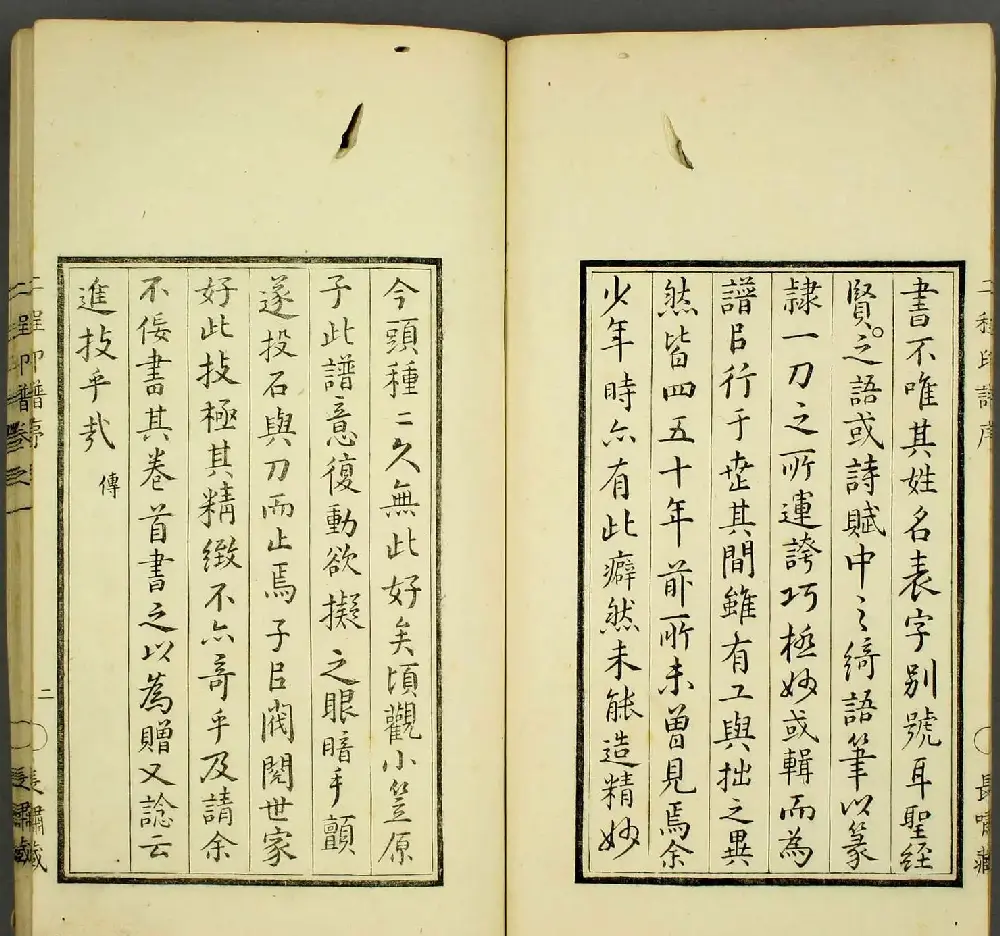 書不唯其姓名表字別號耳聖經
賢之語或詩賦中之綺語筆以篆
隸一刀之所運誇巧極妙或輯而為
譜㠯行于世其間雖有工與拙之異
然皆四五十年前所未曽見焉余
少年時亦有此癖然未能造精妙
今頭種〻久無此好矣頃觀小笠原
子此譜意復動欲擬之眼暗手顫
遂投石與刀而止焉子㠯閥閱世家
好此技極其精緻不亦奇乎及請余
不佞書其卷首書之以為贈又諗云
進技乎哉
傳
二
長嘯藏